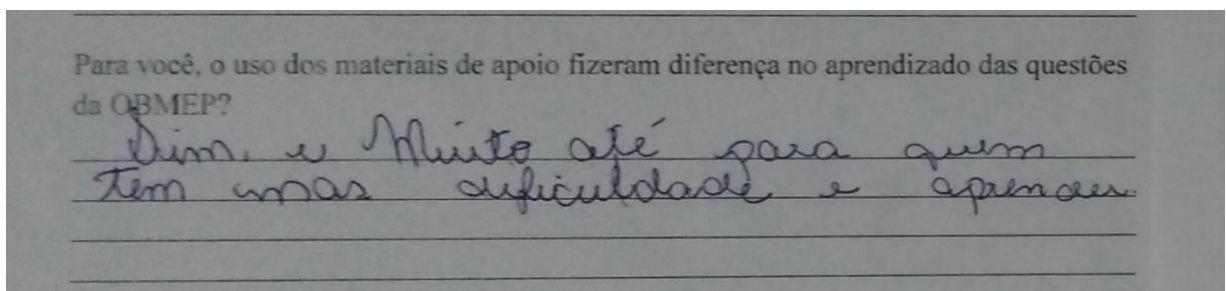 Para você, o uso dos materiais de apoio fizeram diferença no aprendizado das questões
da OBMEP?
Sim, e Muito até para quem
tem umas dificuldade e aprendeu.